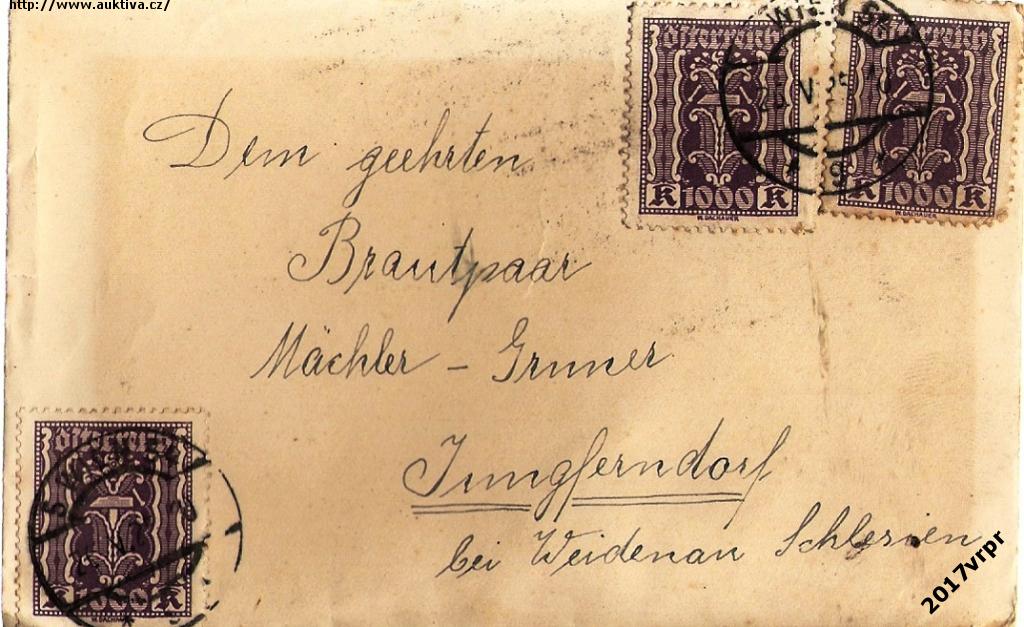 http://www.auktiva.cz/
Österreich
K 1000 K
W. DACHAUER
Österreich
K 1000 K
W. DACHAUER
WIEN
26 V 25
9
Dem geehrten
Brautpaar
Mächler – Gruner
Jungferndorf
bei Weidenau Schlesien
Österreich
K 1000 K
W. DACHAUER
WIEN
2017vrpr